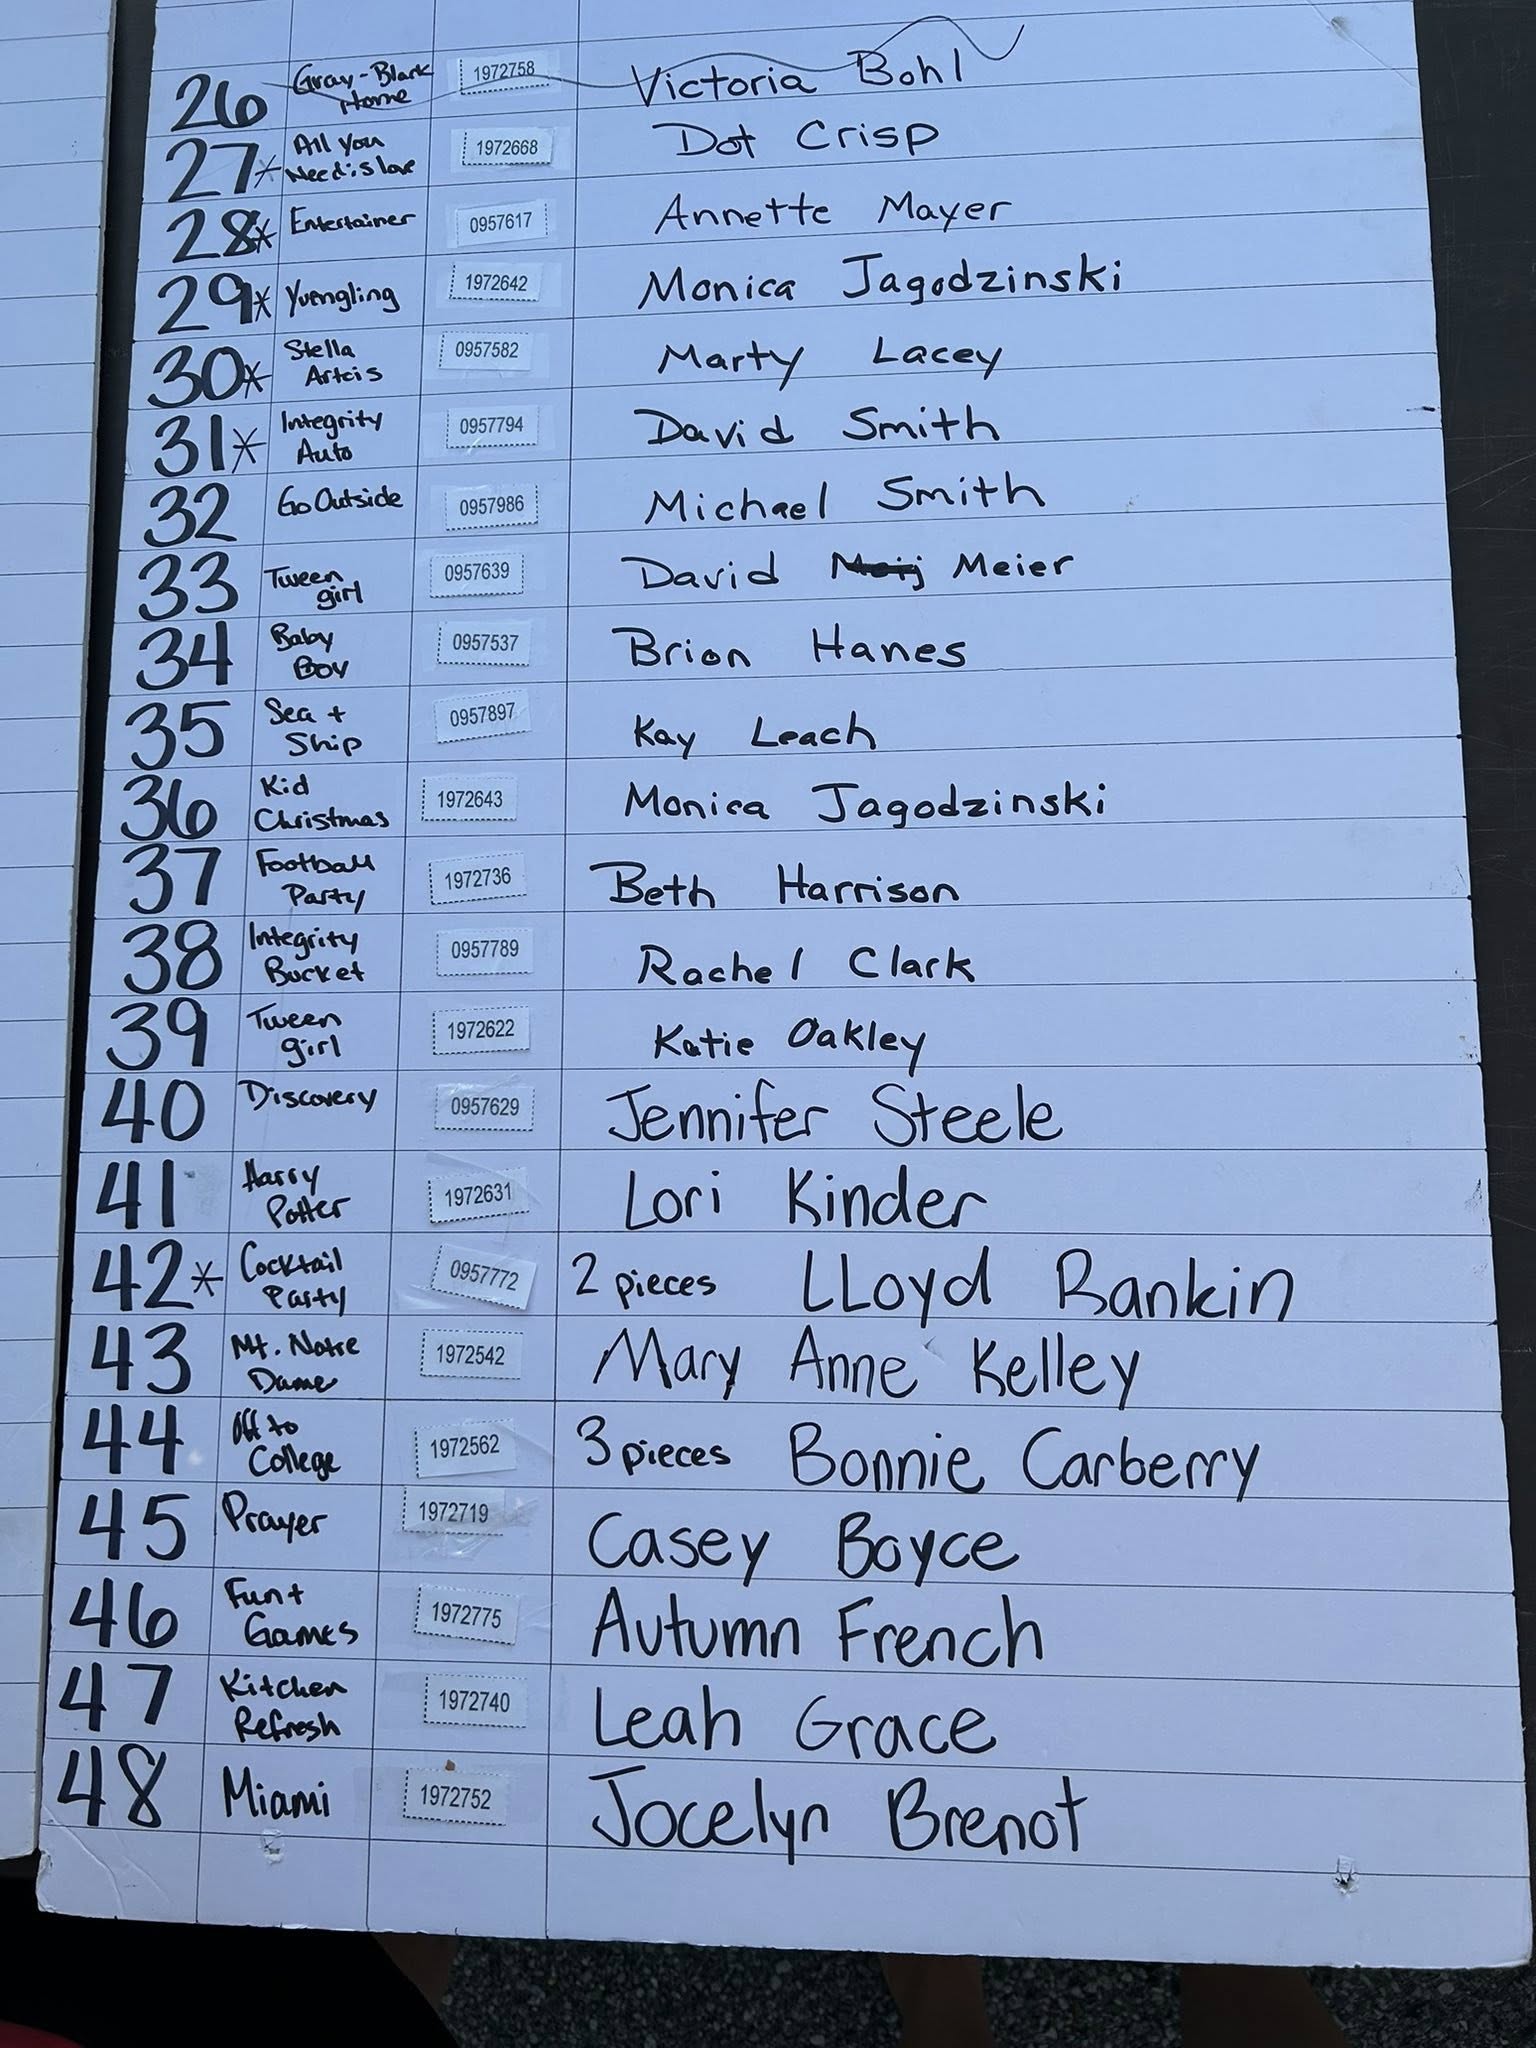 26 Gray-Black Home 1972758 Victoria Bohl
27* All You Need is love 1972668 Dot Crisp
28* Entertainer 0957617 Annette Mayer
29* Yuengling 1972642 Monica Jagodzinski
30* Stella Artois 0957582 Marty Lacey
31* Integrity Auto 0957794 David Smith
32 Go Outside 0957986 Michael Smith
33 Tween girl 0957639 David Meier
34 Baby Boy 0957537 Brion Hanes
35 Sea + Ship 0957897 Kay Leach
36 Kid Christmas 1972643 Monica Jagodzinski
37 Football Party 1972736 Beth Harrison
38 Integrity Bucket 0957789 Rachel Clark
39 Tween girl 1972622 Katie Oakley
40 Discovery 0957629 Jennifer Steele
41 Harry Potter 1972631 Lori Kinder
42* Cocktail Party 0957772 2 pieces LLoyd Rankin
43 Mt. Notre Dame 1972542 Mary Anne Kelley
44 Off to College 1972562 3 pieces Bonnie Carberry
45 Prayer 1972719 Casey Boyce
46 Fun + Games 1972775 Autumn French
47 Kitchen Refresh 1972740 Leah Grace
48 Miami 1972752 Jocelyn Brenot